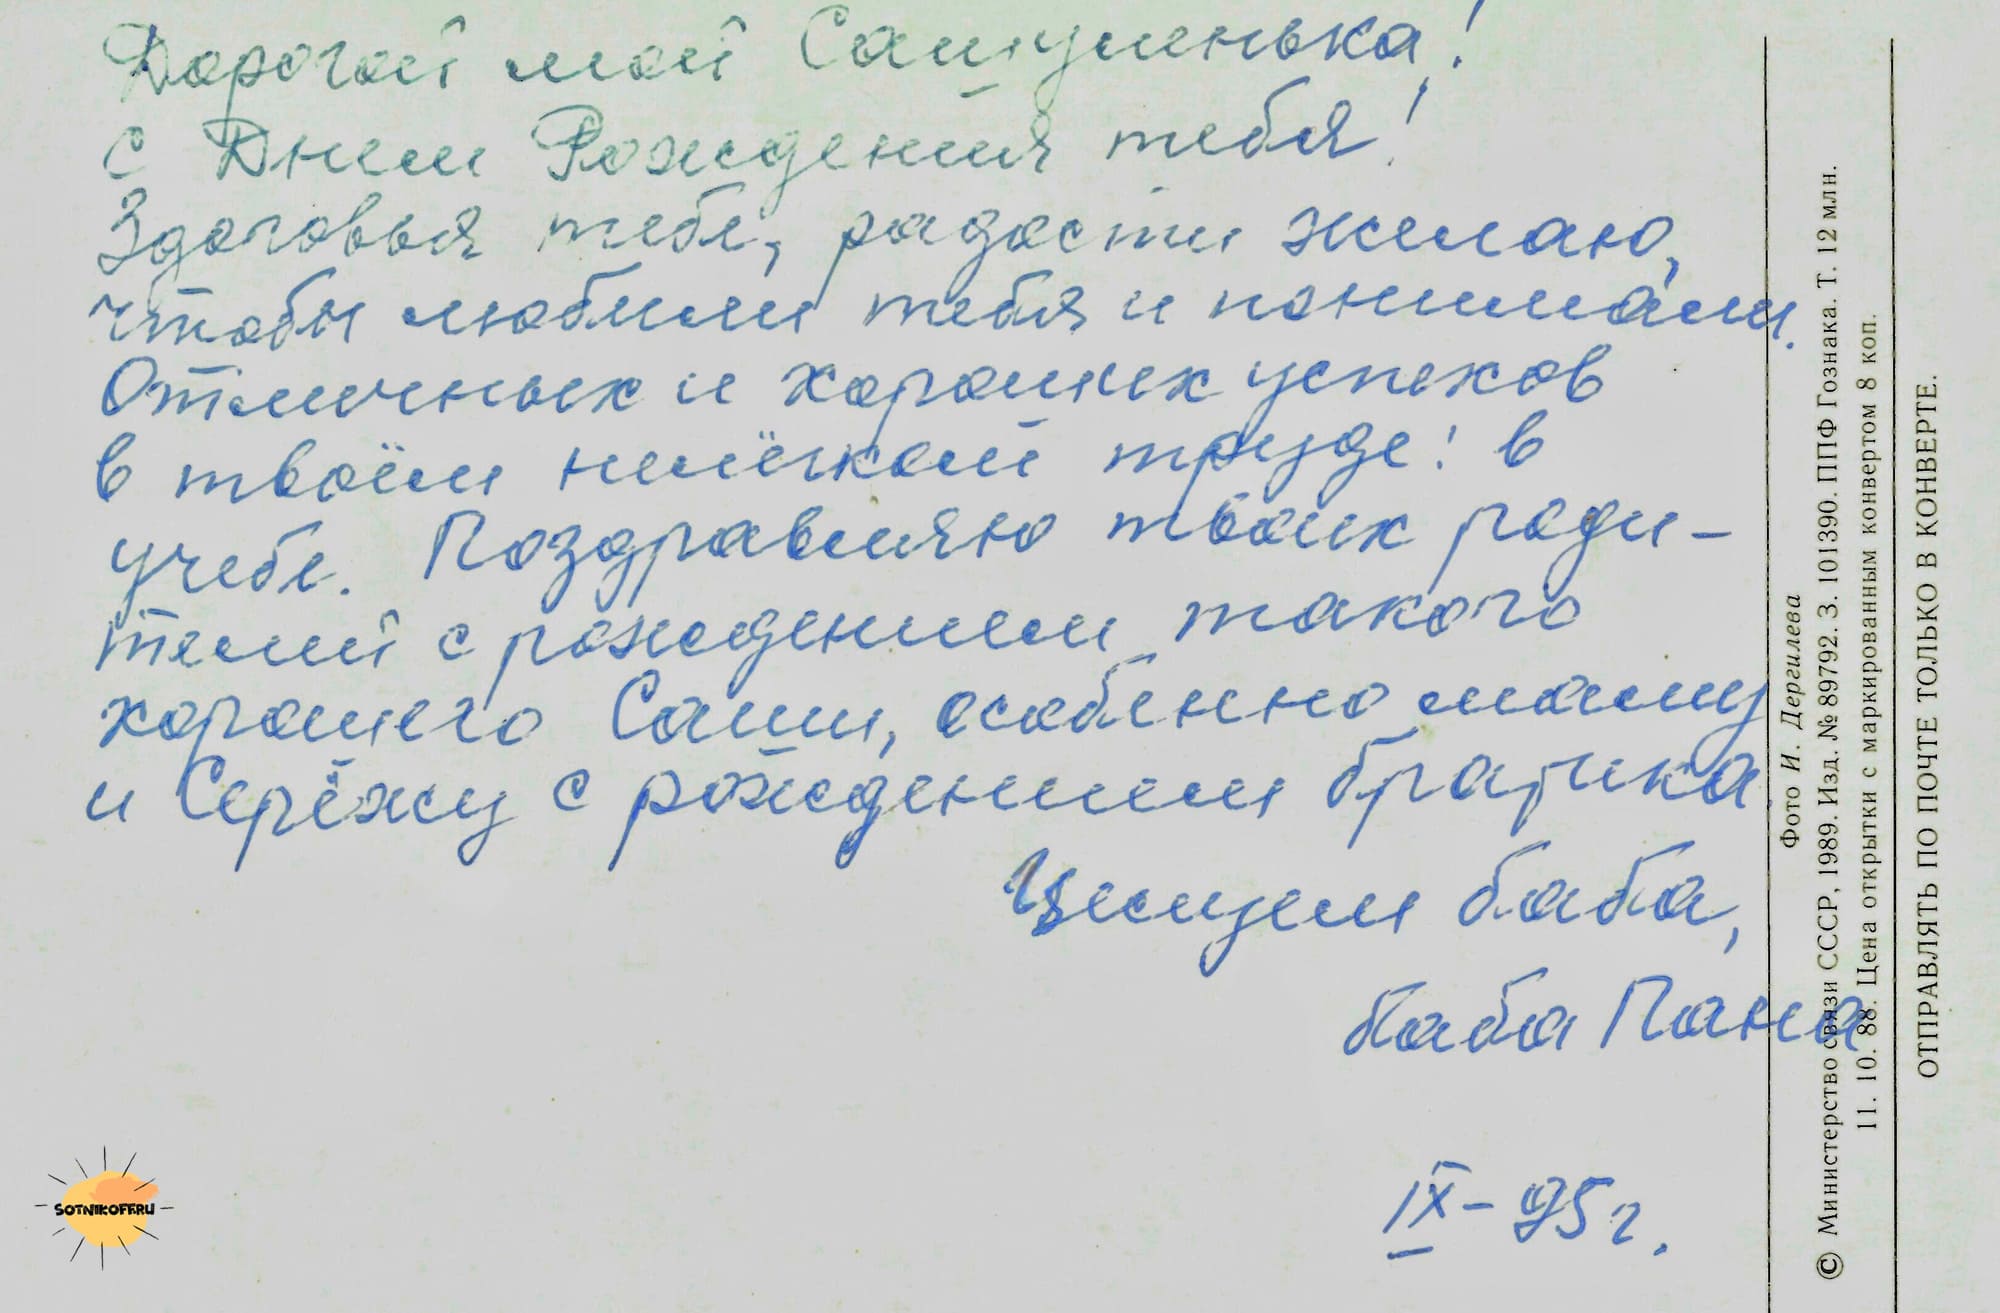 Дорогой мой Сашунька!
с Днём Рождения тебя!
Здоровья тебе, радости желаю,
чтобы любили тебя и понимали.
Отличных и хороших успехов
в твоём нелёгкой труде! в
учебе. Поздравляю твоих роди-
телей с рождением такого
хорошего Саши, особенно маму
и Серёжу с рождением братика.
Целуем баба,
баба Паня
IX – 95 г.
Фото И. Дергилева
© Министерство связи СССР, 1989. Изд. № 89792. З. 101390. ППФ Гознака. Т. 12 млн.
11. 10. 88. Цена открытки с маркированным конвертом 8 коп.
ОТПРАВЛЯТЬ ПО ПОЧТЕ ТОЛЬКО В КОНВЕРТЕ.
SOTNIKOFF.RU